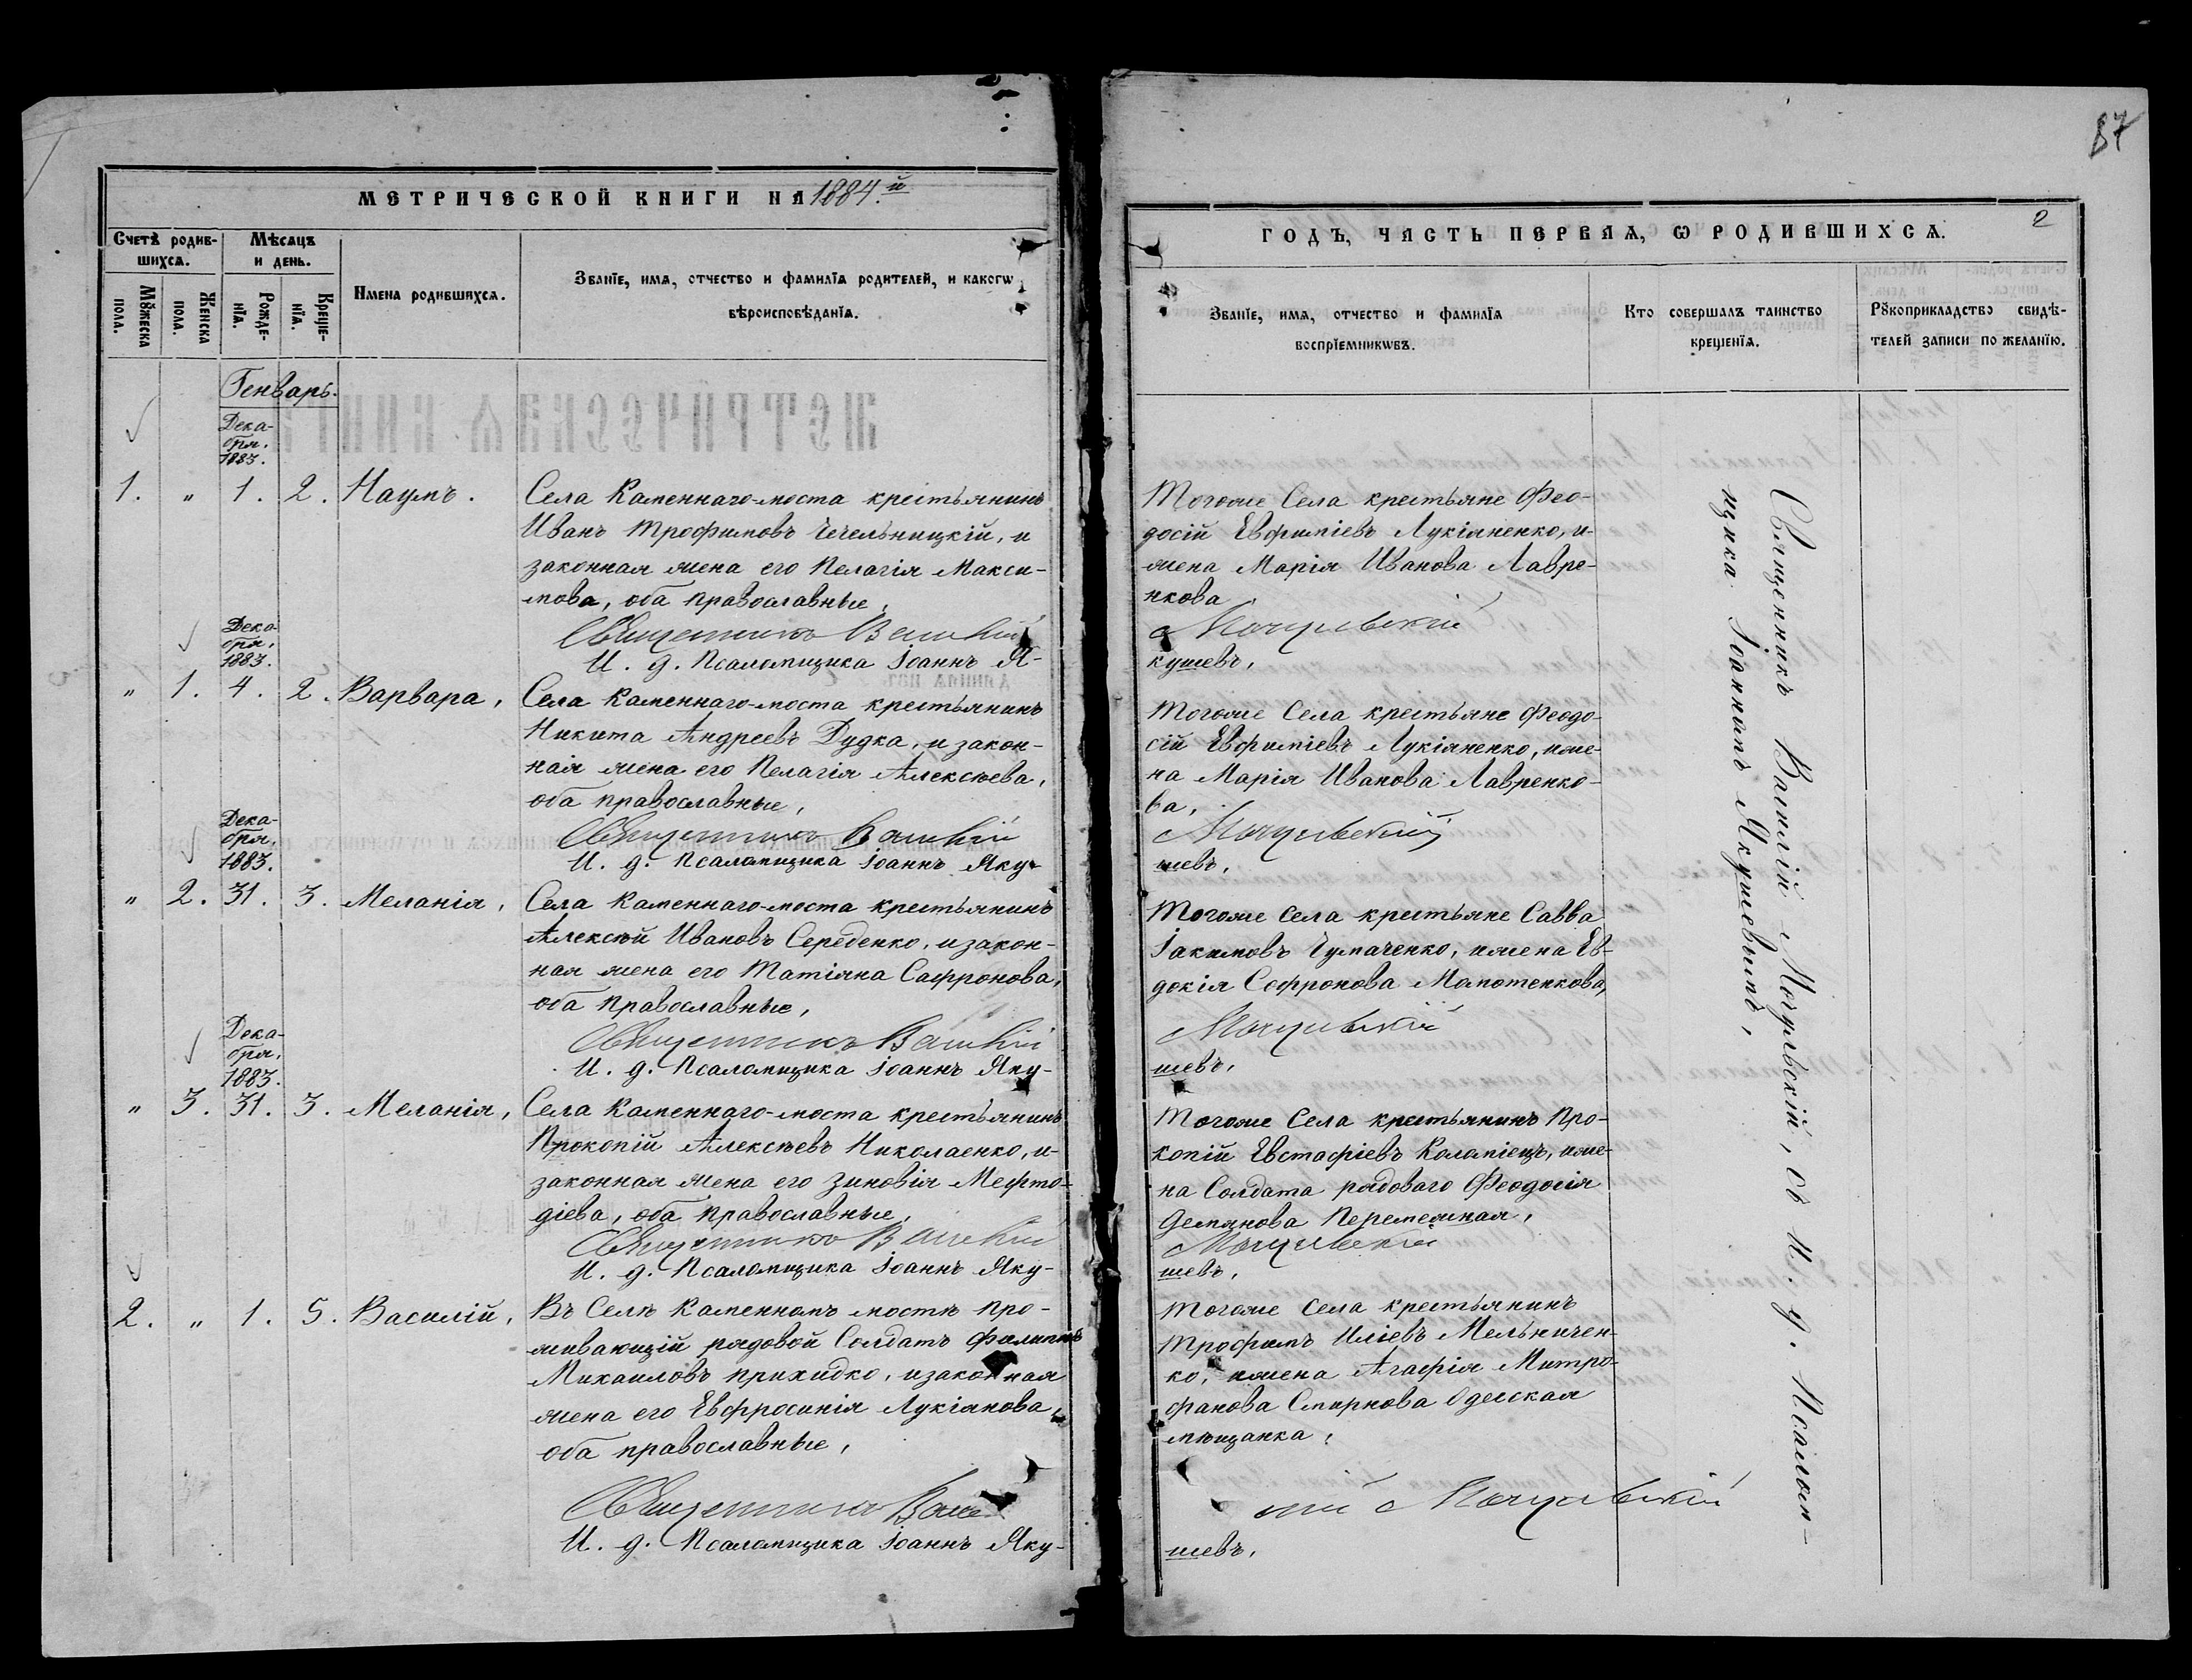 87
МЕТРИЧЕСКОЙ КНИГИ НА 1884.й
ГОДЪ, ЧАСТЬ ПЕРВАЯ, Ѡ РОДИВШИХСѦ. 2
Счетъ родив-
шихсѧ.
Мѣсѧцъ
и день.
Мꙋжеска
пола.
Женска
пола.
Рожде-
нїѧ.
Креще-
нїѧ.
Имена родившихсѧ.
Званїе, имѧ, отчество и фамилїѧ родителей, и какогѡ
вѣроисповѣданїѧ.
Званїе, имѧ, отчество и фамилїѧ
воспрїемникѡвъ.
Кто совершалъ таинство
крещенїѧ.
Рꙋкоприкладство свидѣ-
телей записи по желанїю.
Генварь.
Дека-
бря.
1883.
1. " 1. 2. Наумъ.
Села Каменнаго-моста крестьянинъ
Иванъ Трофимовъ Чечельницкій, и
законная жена его Пелагія Макси-
мова, оба православные,
Священникъ Василій
И. д. Псаломщика Іоаннъ Я-
Тогоже Села крестьяне Фео-
досій Евфиміевъ Лукіяненко, и
жена Марія Иванова Лавре-
нкова
Мочульскій
кушевъ,
Дека-
бря.
1883.
" 1. 4. 2. Варвара,
Села Каменнаго-моста крестьянинъ
Никита Андреевъ Дудка, и закон-
ная жена его Пелагія Алексѣева,
оба православные,
Священникъ Василій
И. д. Псаломщика Іоаннъ Яку-
Тогоже Села крестьяне Феодо-
сій Евфиміевъ Лукіяненко, и же-
на Марія Иванова Лавренко-
ва,
Мочульскій
шевъ,
Дека-
бря.
1883.
" 2. 31. 3. Меланія,
Села Каменнаго-моста крестьянинъ
Алексѣй Ивановъ Середенко, и закон-
ная жена его Татіяна Сафронова,
оба православные,
Священникъ Василій
И. д. Псаломщика Іоаннъ Яку-
Тогоже села крестьяне Савва
Іакимовъ Чумаченко, и жена Ев-
докія Софронова
Мочульскій
шевъ,
Дека-
бря,
1883.
" 3. 31. 3. Меланія,
Села Каменнаго-моста крестьянинъ
Прокопій Алексѣевъ Николаенко, и
законная жена его Зиновія Мефто-
діева, оба православные,
Священникъ Василій
И. д. Псаломщика Іоаннъ Яку-
Тогоже Села крестьянинъ Про-
копій Евстафіевъ Коломіецъ, и же-
на Солдата рядоваго Феодосія
Демянова
Мочульскій
шевъ,
2. " 1. 5. Василій,
Въ Селѣ Каменномъ мостѣ про-
живающій рядовой Солдатъ Филиппъ
Михаиловъ Прихидко, и законная
жена его Евфросинія Лукіянова,
оба православные,
Священникъ Васи
И. д. Псаломщика Іоаннъ Яку-
Тогоже села крестьянинъ
Трофимъ Иліевъ Мельничен-
ко, и жена Агафія Митро-
фанова Смирнова Одесская
мѣщанка,
лій Мочульскій
шевъ,
Священникъ Василій Мочульскій, съ и. д. Псалом-
щика Іоанномъ Якушевымъ,